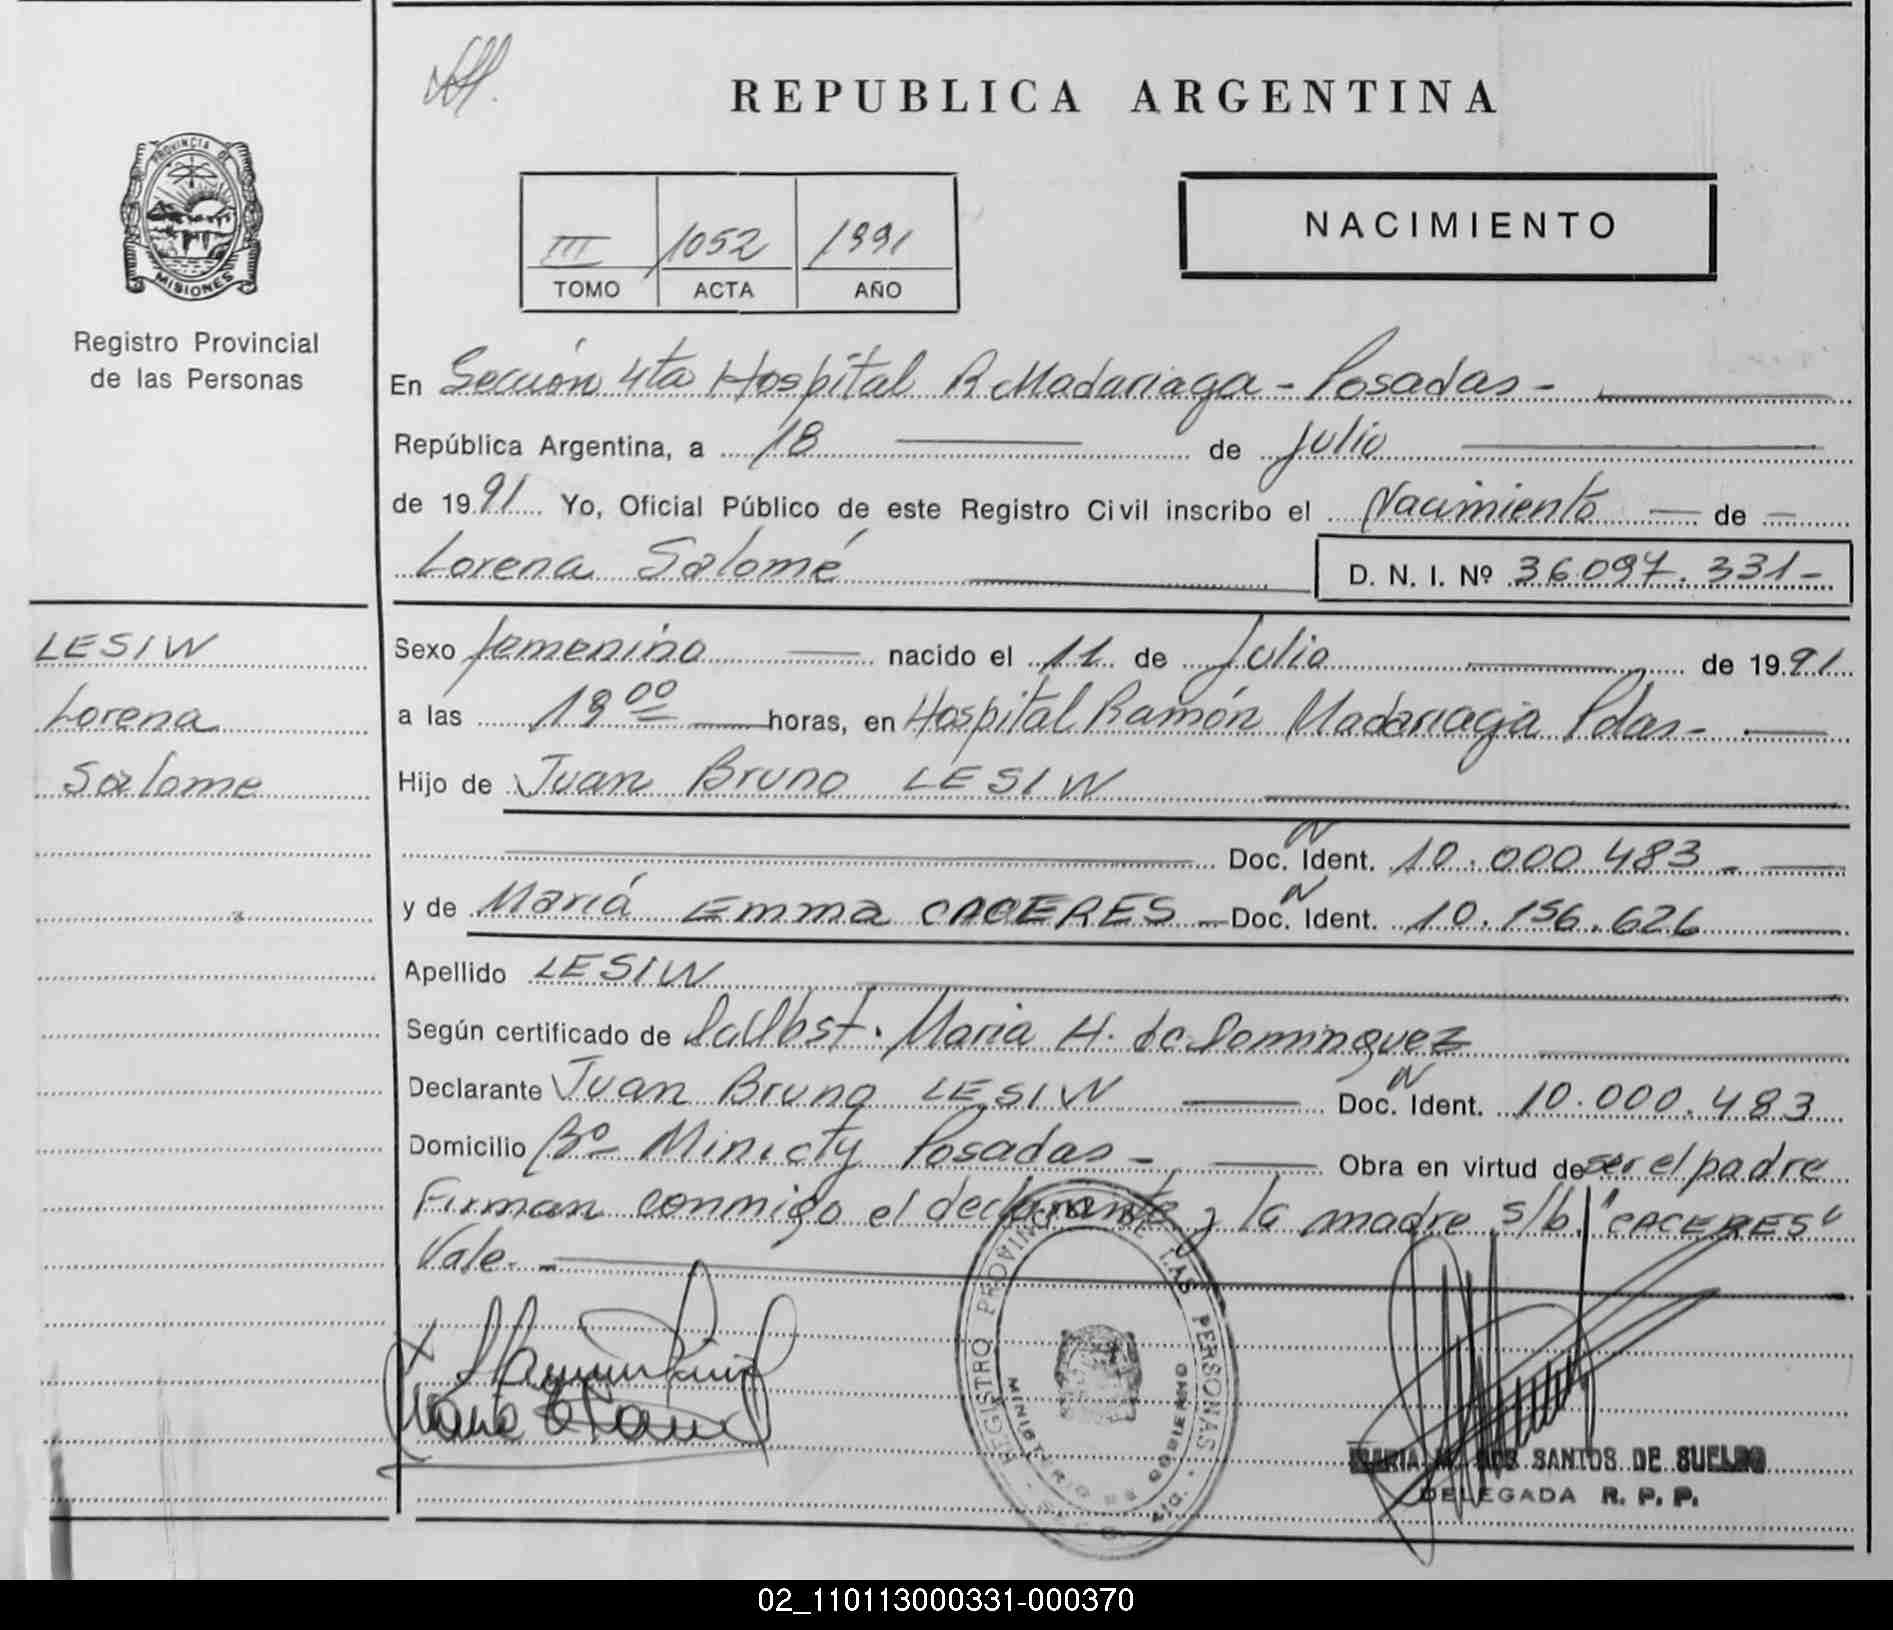 REPUBLICA ARGENTINA
PROVINCIA DE
MISIONES
Registro Provincial
de las Personas
III 1052 1991
TOMO ACTA AÑO
NACIMIENTO
En Sección 4ta Hospital R Madariaga - Posadas -
República Argentina, a 18 de Julio
de 1991 Yo, Oficial Público de este Registro Civil inscribo el Nacimiento de
Lorena Salomé D. N. I. Nº 36097.331-
LESIW
Lorena
Salome
Sexo femenino nacido el 11 de Julio de 1991
a las horas, en Hospital Ramón Madariaga Pdas-
Hijo de Juan Bruno LESIW
Doc. Ident. 10.000.483-
y de María Emma CACERES - Doc. Ident. 10.156.626
Apellido LESIW
Según certificado de Maria H. de Dominguez
Declarante Juan Bruno LESIW Doc. Ident. 10.000.483
Domicilio Bº Minicty Posadas - Obra en virtud de ser el padre
Firman conmigo el declarante y la madre s/b "CACERES"
Vale. -
REGISTRO PROVINCIAL DE LAS PERSONAS
MINISTERIO DE GOBIERNO
MARIA M. DOS SANTOS DE SUELDO
DELEGADA R. P. P.
02_110113000331-000370